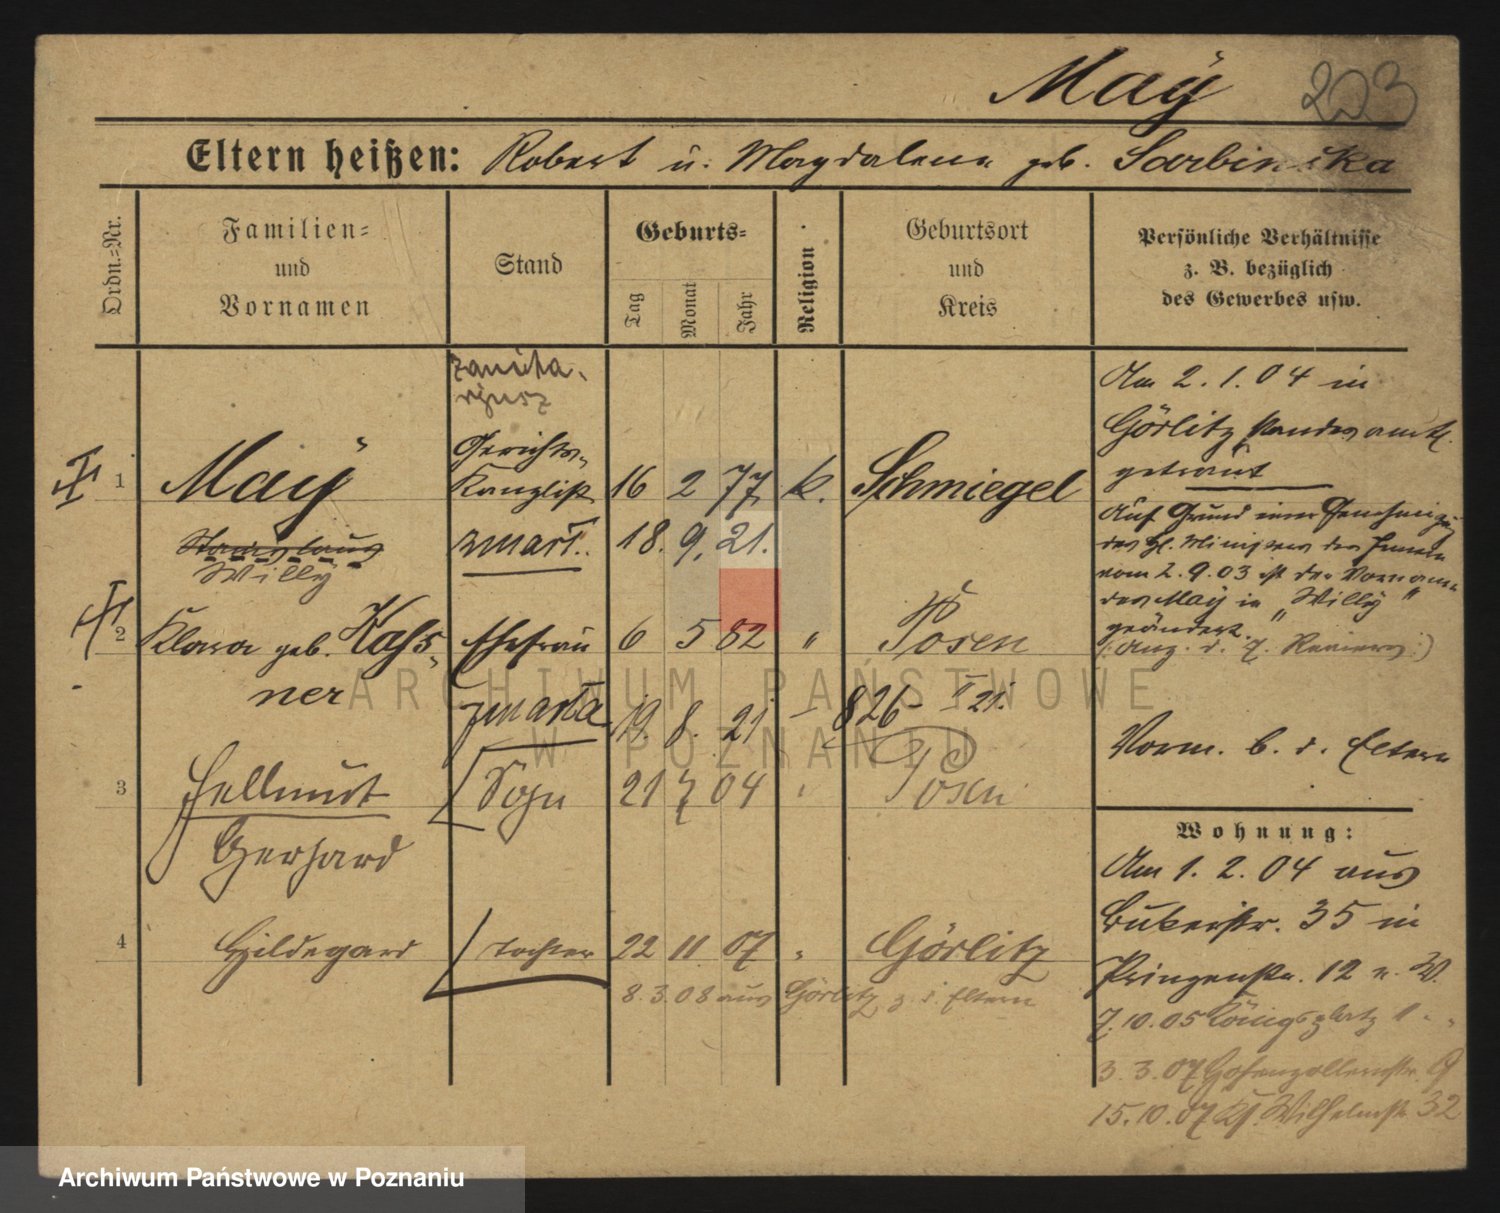 Maÿ 223
Eltern heißen: Robert u. Magdalena geb. Sarbinska
Ordn.-Nr.
Familien-
und
Vornamen
Stand
Geburts-
Tag
Monat
Jahr
Religion
Geburtsort
und
Kreis
Persönliche Verhältnisse
z. B. bezüglich
des Gewerbes usw.
1 Maÿ
Stanislaus
Willÿ
Gerichts-
Kanzlist
16 2 77 k. Schmiegel
zmarł 18. 9. 21.
Am 2. 1. 04 in
Görlitz standesamtl.
getraut
Auf Grund einer Genehmigg
des H. Ministers des Innern
vom 2. 9. 03 ist der Vorname
des Maÿ in „Willÿ“
geändert.
2 Klara geb. Kass-
ner
Ehefrau 6 5 82 " Posen
zmarła 19. 8. 21 – 826 – II 21.
Vorm. b. d. Eltern
3 Hellmut
Gerhard
Sohn 21 7 04 Posen
4 Hildegard Tochter 22 11 07 " Görlitz
8. 3. 08 aus Görlitz z. d. Eltern
Wohnung:
Am 1. 2. 04 aus
35 in
Prinzenstr. 12 n. W.
7. 10. 05 Königsplatz 1
3. 3. 07 Hohenzollernstr. 9
15. 10. 07 Ks. Wilhelmstr. 32
ARCHIWUM PAŃSTWOWE
W POZNANIU
Archiwum Państwowe w Poznaniu